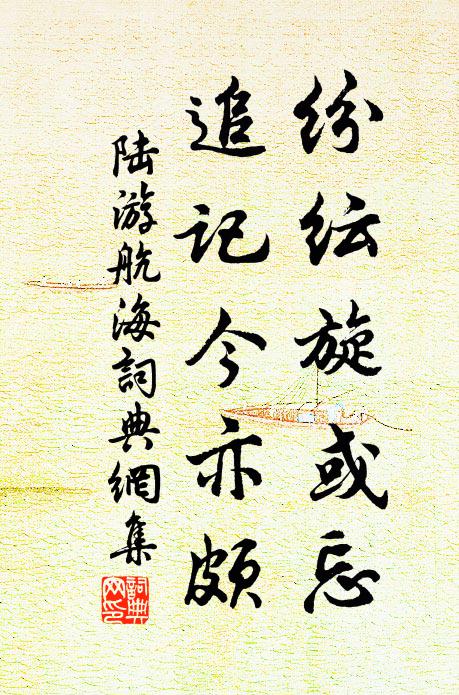 纷纭旋或忘
追记今亦颇
陆游航海詞典網集
詞典
网印